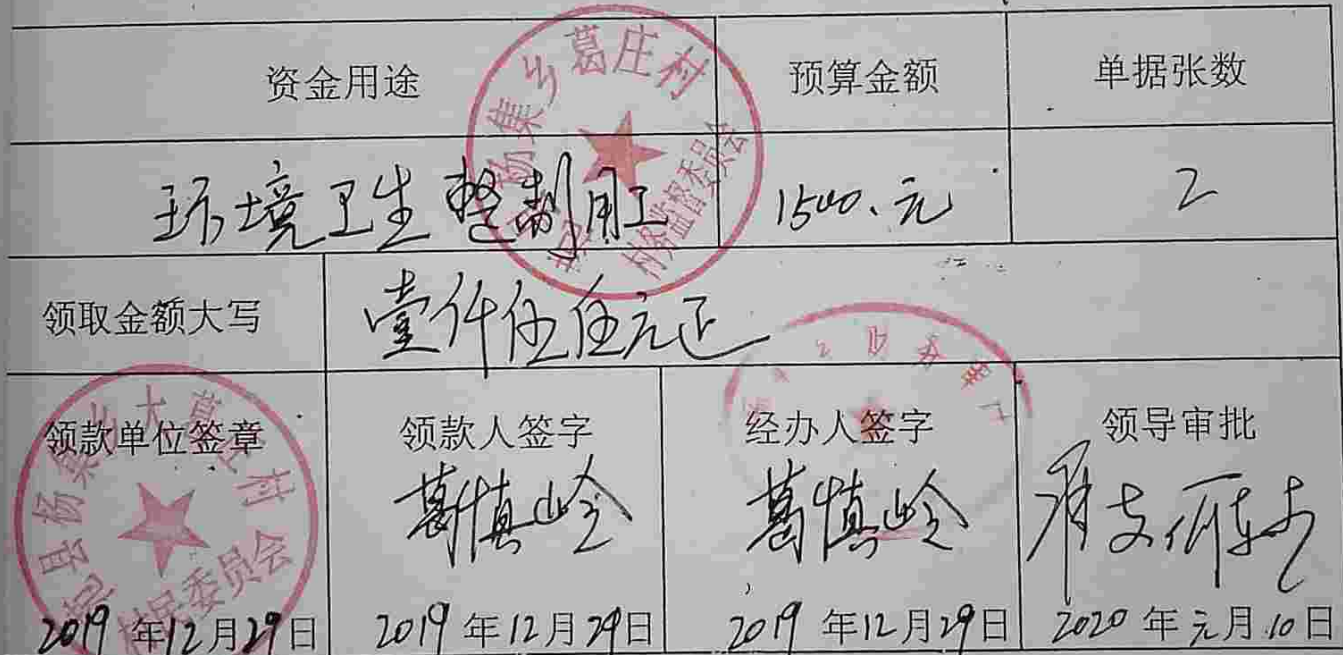 资金用途 预算金额 单据张数
环境卫生整制用工 1500.元 2
领取金额大写 壹仟伍佰元正
领款单位签章 领款人签字 经办人签字 领导审批
葛慎岭 葛慎岭
2019年12月29日 2019年12月29日 2019年12月29日 2020年元月10日
杨集乡葛庄村
村务监督委员会
县杨集乡大葛庄村
村民委员会